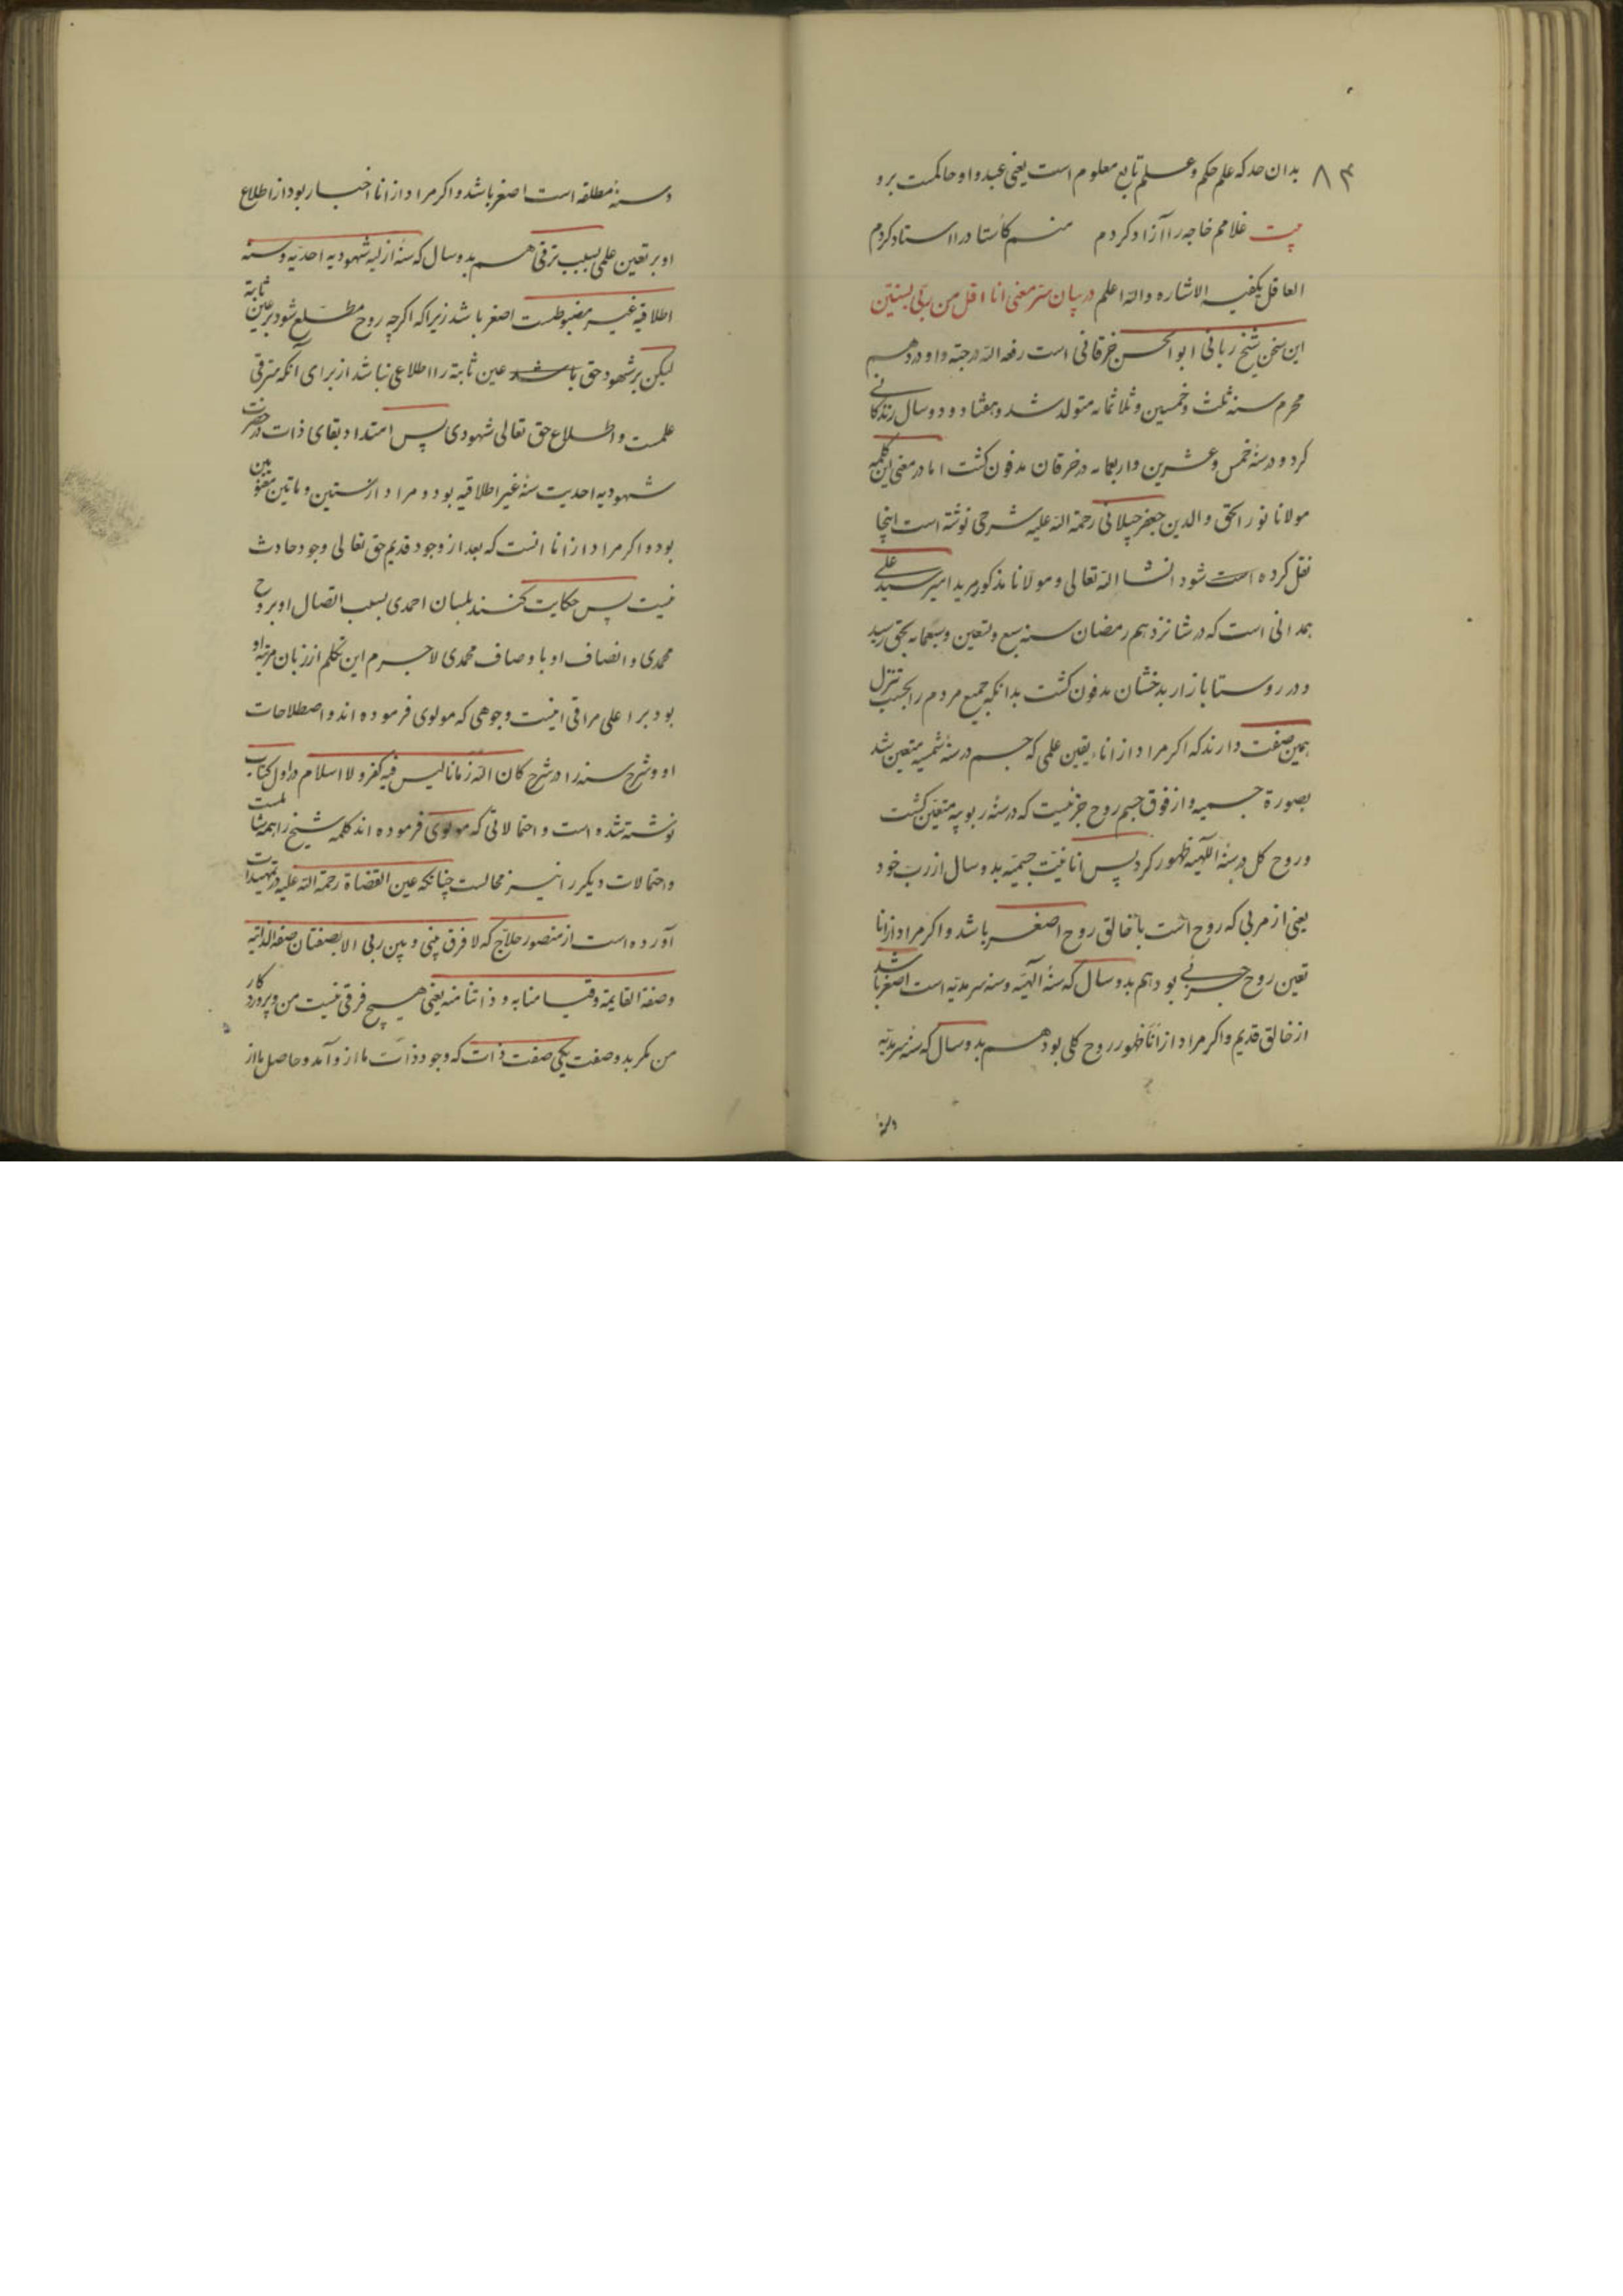 ۸۳ بدان حد که علم حکم و علم تابع معلوم است یعنی عبده و او حاکمست برو
بیت غلامم خاجه را آزاد کردم منم کاستا درا استاد کردم
العاقل یکفیه الاشاره والله اعلم در بیان سر معنی انا اقل من ربی بسنتین
این سخن شیخ ربانی ابو الحسن خرقانی است رفعه الله درجته و او در دهم
محرم سنه ثلث و خمسین و ثلاثمائه متولد شد و هفتاد و دو سال زندگانی
کرد و در سنهٔ خمس و عشرین و اربعمائه در خرقان مدفون گشت اما در معنی این کلمه
مولانا نور الحق والدین جعفر رحمة الله علیه شرحی نوشته است اینجا
نقل کرده است شود انشا الله تعالی و مولانا مذکور مرید امیر سید علی
همدانی است که در شانزدهم رمضان سنه سبع و تسعین و سبعمائه بحق رسید
و در روستا بازار بدخشان مدفون گشت بدانکه جمیع مردم را بحسب تنزل
همین صفت دارند که اگر مراد از انا یقین علمی که جسم در سنهٔ شمسیه متعین شد
بصورة جسمیه و از فوق جسم روح جزئیست که در سنهٔ ربوبیه متعین گشت
و روح کل در سنهٔ اللهیه ظهور کرد پس انانیت جسمیه بدو سال از رب خود
یعنی از مربی که روح است با خالق روح اصغر باشد و اگر مراد از انا
تعین روح جزئی بود هم بدو سال که سنهٔ الهیه و سنه سرمدیه است اصغر باشد
از خالق قدیم و اگر مراد از انا ظهور روح کلی بود هم بدو سال که سنهٔ سرمدیه
و سنهٔ
و سنهٔ مطلقه است اصغر باشد و اگر مراد از انا اخبار بود از اطلاع
او بر تعین علمی بسبب ترقی هم بدو سال که سنهٔ ازلیه شهودیه احدیه و سنه
اطلاقیه غیر مضبوطست اصغر باشد زیرا که اگرچه روح مطلع شود بر عین ثابته
لیکن بر شهود حق باشد عین ثابته را اطلاعی نباشد از برای آنکه مترقی
علمست و اطلاع حق تعالی شهودی پس امتداد بقای ذات در حضرت
شهودیه احدیت سنهٔ غیر اطلاقیه بود و مراد از سنتین و ماتین
بود و اگر مراد از انا انست که بعد از وجود قدیم حق تعالی وجود حادث
نیست پس حکایت کنند بلسان احمدی بسبب اتصال او بروح
محمدی و اتصاف او با وصاف محمدی لاجرم این تکلم از زبان مرتبهٔ او
بود بر اعلی مراقی اینست وجوهی که مولوی فرموده اند و اصطلاحات
او و شرح سنه را در شرح کان الله زمانا لیس فیه کفر و لا اسلام در اول کتاب
نوشته شده است و احتمالاتی که مولوی فرموده اند کلمه شیخ را همه
و احتمالات دیگر را نیز محالست چنانکه عین القضاة رحمة الله علیه در تمهیدات
آورده است از منصور حلاج که لا فرق بینی و بین ربی الا بصفتان صفة الذاتیه
وصفة القایمة و قیامنا به و ذاتنا منه یعنی هیچ فرقی نیست من و پروردکار
من مکر بدو صفت یکی صفت ذات که وجود ذات ما از و آمد و حاصل ما از